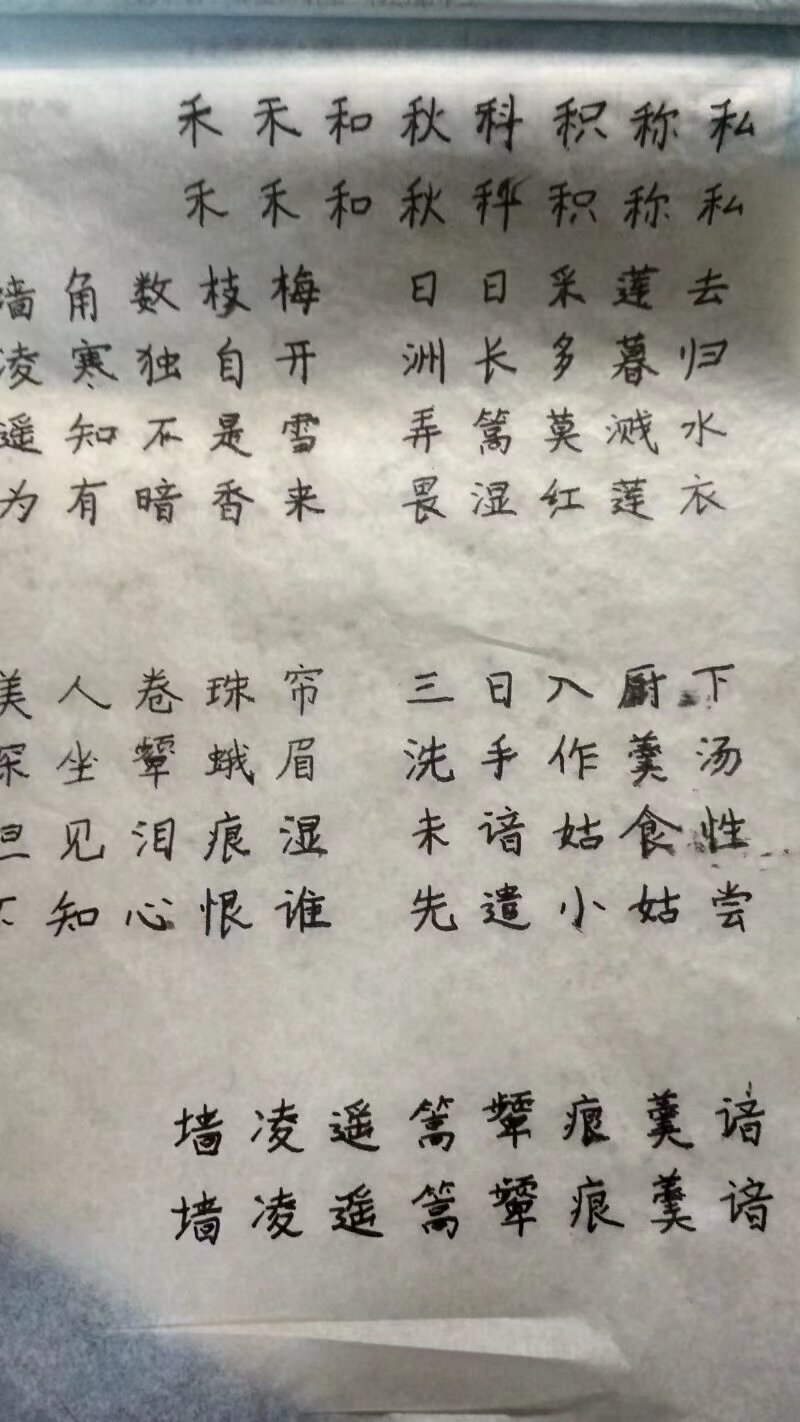 禾 禾 和 秋 科 积 称 私
禾 禾 和 秋 秤 积 称 私
墙 角 数 枝 梅
凌 寒 独 自 开
遥 知 不 是 雪
为 有 暗 香 来
日 日 采 莲 去
洲 长 多 暮 归
弄 篙 莫 溅 水
畏 湿 红 莲 衣
美 人 卷 珠 帘
深 坐 颦 蛾 眉
但 见 泪 痕 湿
不 知 心 恨 谁
三 日 入 厨 下
洗 手 作 羹 汤
未 谙 姑 食 性
先 遣 小 姑 尝
墙 凌 遥 篙 颦 痕 羹 谙
墙 凌 遥 篙 颦 痕 羹 谙